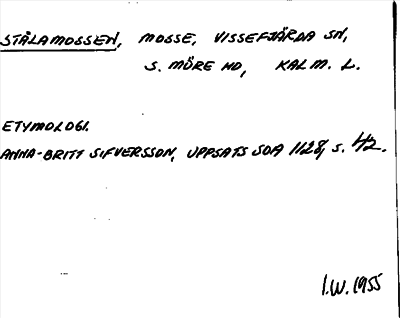 STÅLAMOSSEN, MOSSE, VISSEFJÄRDA SN,
S. MÖRE HD, KALM. L.
ETYMOLOGI.
ANNA-BRITT SIFVERSSON, UPPSATS SOA 1128, S. 42.
I.W. 1955